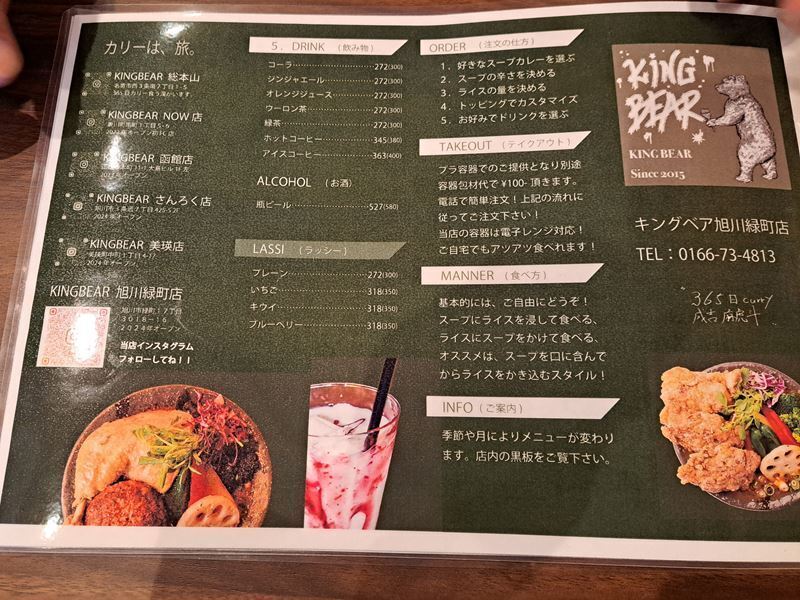 カリーは、旅。
KINGBEAR 総本山
365日カリー食う深かいます。
KINGBEAR NOW店
KINGBEAR 函館店
KINGBEAR さんろく店
2024年オープン
KINGBEAR 美瑛店
2024年オープン
KINGBEAR 旭川緑町店
旭川市緑町17丁目
3018-16
2024年オープン
当店インスタグラム
フォローしてね！！
5. DRINK (飲み物)
コーラ 272(300)
ジンジャエール 272(300)
オレンジジュース 272(300)
ウーロン茶 272(300)
緑茶 272(300)
ホットコーヒー 345(380)
アイスコーヒー 363(400)
ALCOHOL (お酒)
瓶ビール 527(580)
LASSI (ラッシー)
プレーン 272(300)
いちご 318(350)
キウイ 318(350)
ブルーベリー 318(350)
ORDER (注文の仕方)
1. 好きなスープカレーを選ぶ
2. スープの辛さを決める
3. ライスの量を決める
4. トッピングでカスタマイズ
5. お好みでドリンクを選ぶ
TAKEOUT (テイクアウト)
プラ容器でのご提供となり別途
容器包材代で ¥100- 頂きます。
電話で簡単注文！上記の流れに
従ってご注文下さい！
当店の容器は電子レンジ対応！
ご自宅でもアツアツ食べれます！
MANNER (食べ方)
基本的には、ご自由にどうぞ！
スープにライスを浸して食べる、
ライスにスープをかけて食べる、
オススメは、スープを口に含んで
からライスをかき込むスタイル！
INFO (ご案内)
季節や月によりメニューが変わり
ます。店内の黒板をご覧下さい。
KING
BEAR
KING BEAR
Since 2015
キングベア旭川緑町店
TEL：0166-73-4813
365日curry